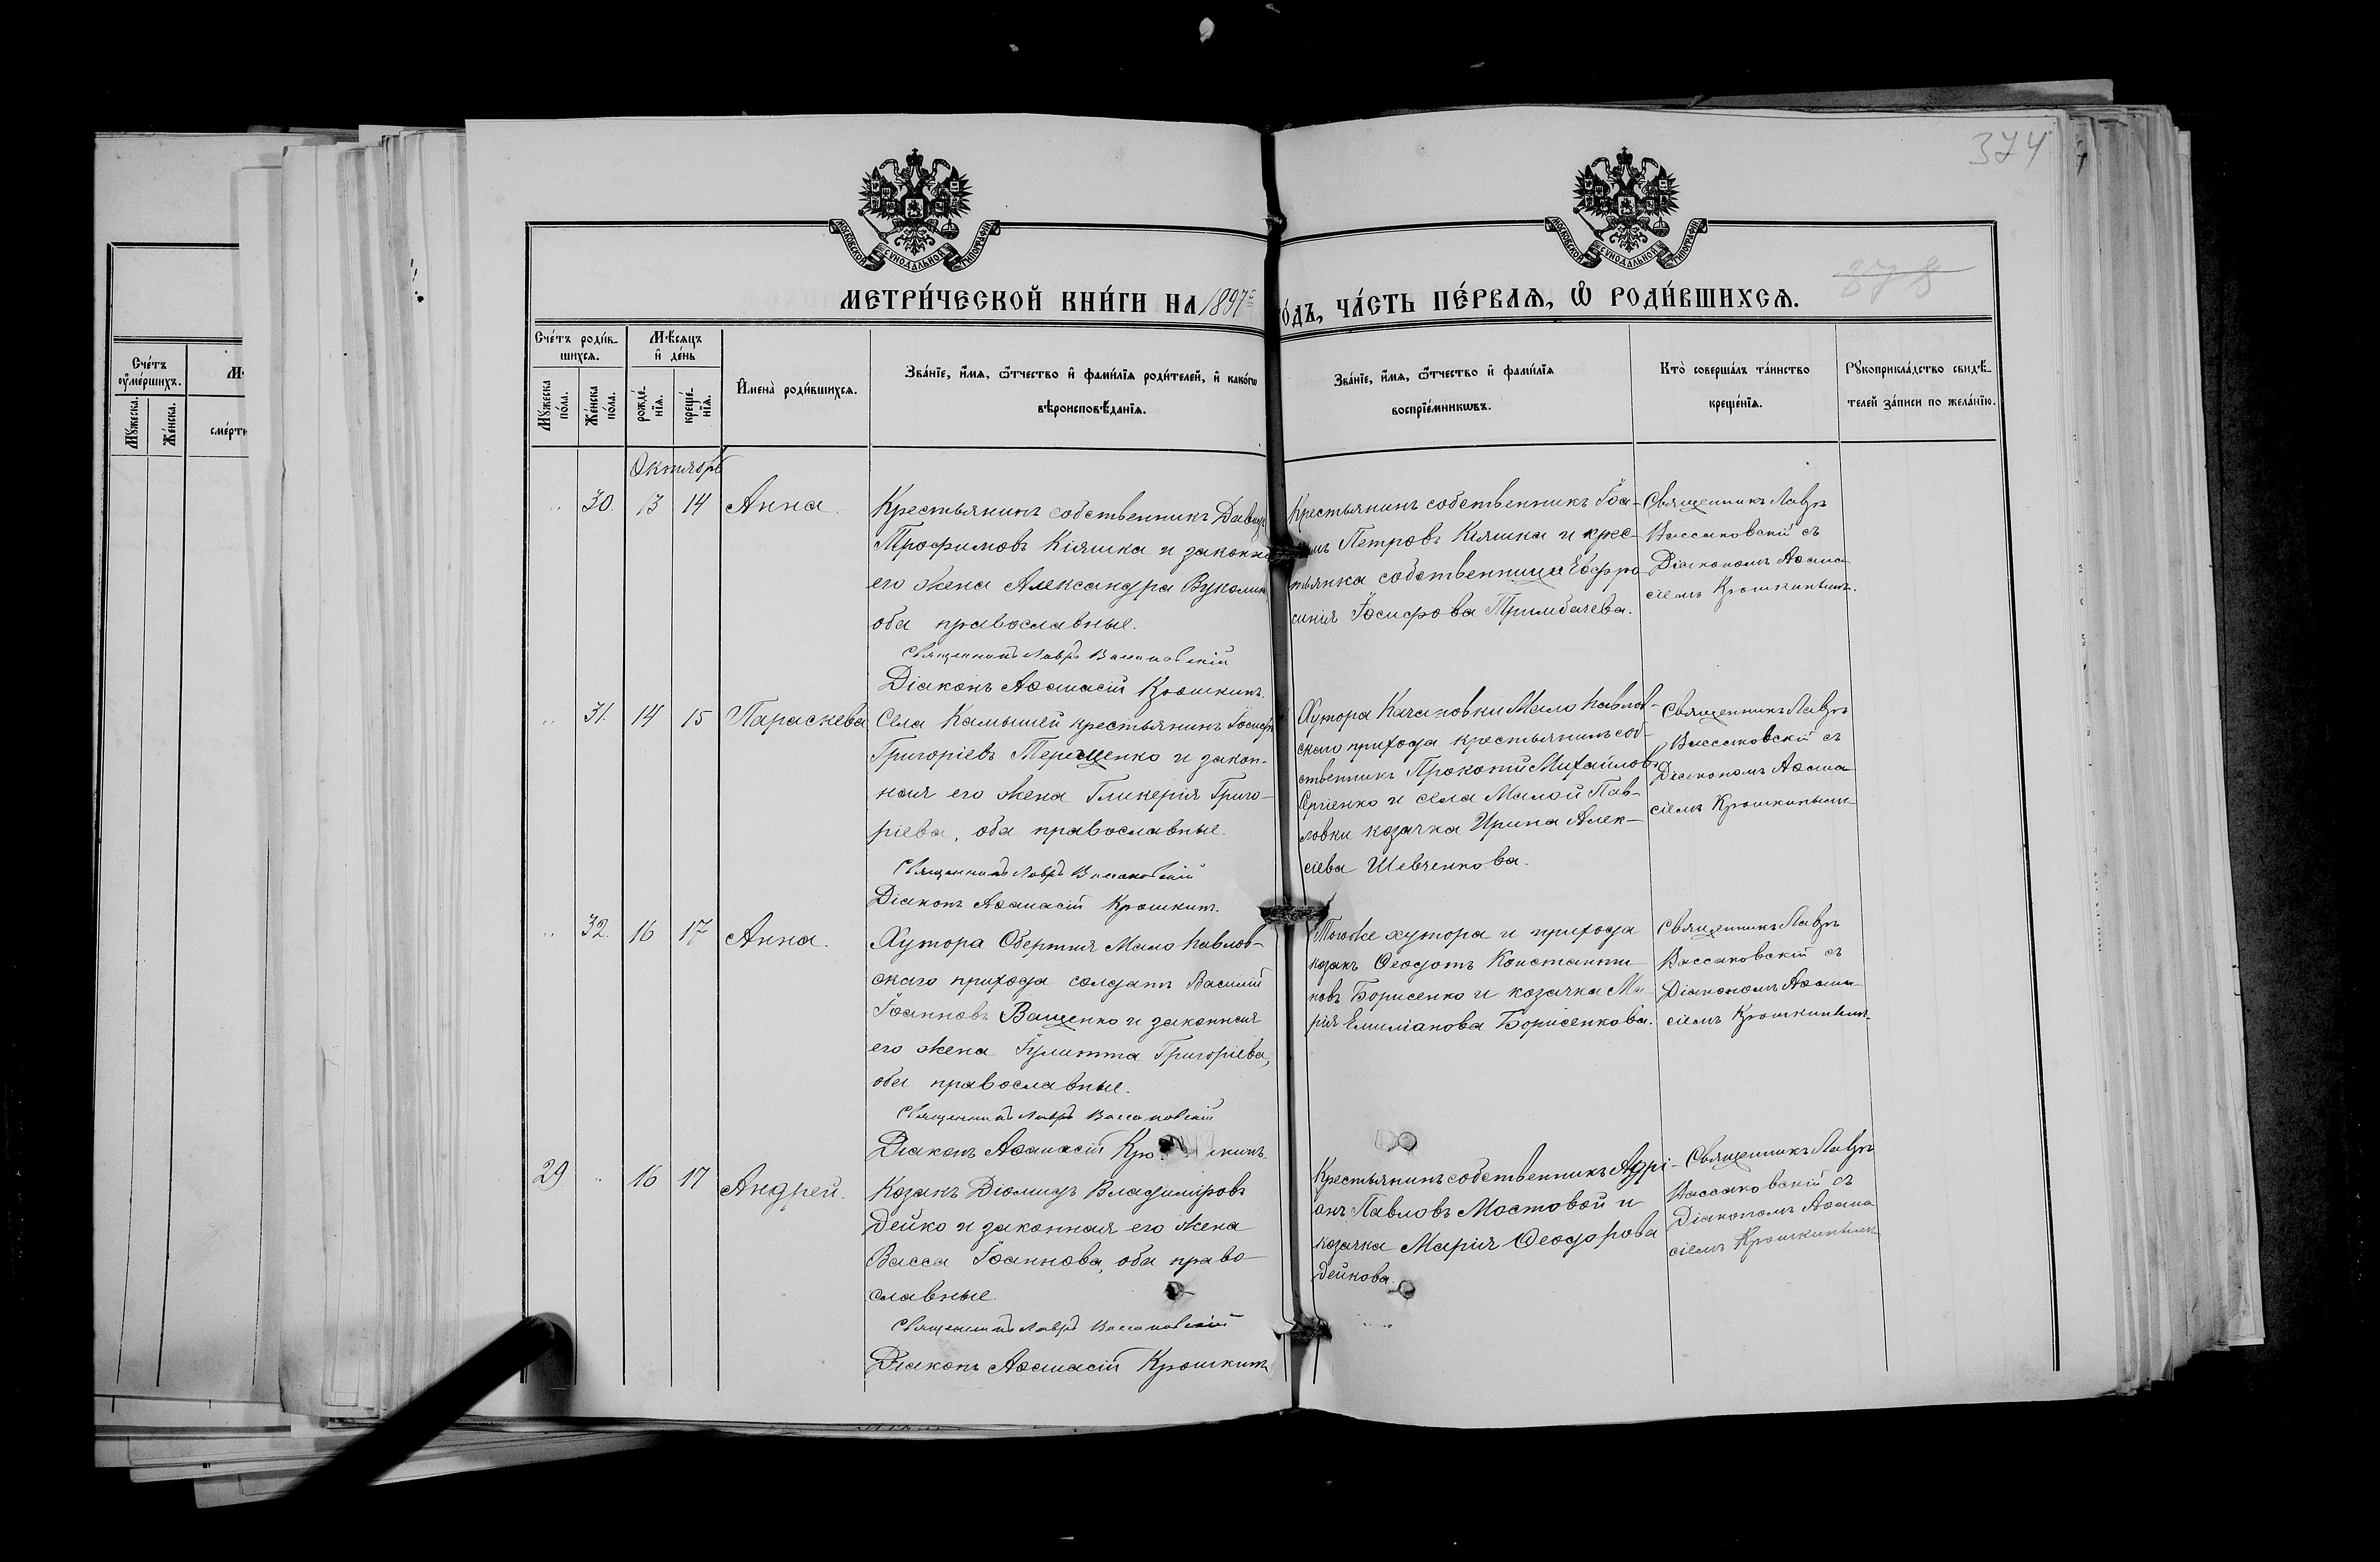 374
МОСКОВСКОЙ СѴНОДАЛЬНОЙ ТИПОГРАФІИ
МОСКОВСКОЙ СѴНОДАЛЬНОЙ ТИПОГРАФІИ
378
МЕТРИ́ЧЕСКОЙ КНИ́ГИ НА 1897
О́ДЪ, ЧА́СТЬ ПЕ́РВАѦ, Ѡ РОДИ́ВШИХСѦ.
Сче́тъ оуме́ршихъ.
Мꙋ́жеска.
Же́нска.
сме́рти
Сче́тъ роди́в-
шихсѧ.
Мꙋ́жеска по́ла.
Же́нска по́ла.
Мѣ́сѧцъ
и҆ де́нь
рожде́-
нїѧ.
креще́-
нїѧ.
И҆мена̀ роди́вшихсѧ.
Зва́нїе, и҆́мѧ, ѻ҆́тчество и҆ фами́лїѧ роди́телей, и҆ како́гѡ
вѣроисповѣ́данїѧ.
Зва́нїе, и҆́мѧ, ѻ҆́тчество и҆ фами́лїѧ
воспрїе́мникѡвъ.
Кто̀ соверша́лъ та́инство
креще́нїѧ.
Рꙋкоприкла́дство свидѣ́-
телей за́писи по жела́нїю.
Октябрь
30. 13 14 Анна.
Крестьянинъ собственникъ Давидъ
Трофимовъ Кіяшка и законна
его жена Александра Вуколина
оба православные.
Священникъ Лавръ Вассаковскій
Діаконъ Аѳанасій Крошкинъ.
Крестьянинъ собственникъ Іоа-
Петровъ Кіяшка и крес-
тьянка собственница Евфро
синія Іосифова Тримбачева.
Священникъ Лавръ
Вассаковскій съ
Діакономъ Аѳана
сіемъ Крошкинымъ.
31. 14 15 Параскева
Села Камышей крестьянинъ Іосифъ
Григоріевъ Терещенко и закон-
ная его жена Гликерія Григо-
ріева, оба православные.
Священникъ Лавръ Вассаковскій
Діаконъ Аѳанасій Крошкинъ.
Хутора Качановки Мало Павлов-
скаго прихода крестьянинъ соб-
ственникъ Прокопій Михайловъ
Сергіенко и села Малой Пав-
ловки козачка Ирина Алек-
сіева Шевченкова.
Священникъ Лавръ
Вассаковскій съ
Діакономъ Аѳана
сіемъ Крошкинымъ
32. 16 17 Анна.
Хутора Обертня Мало Павлов-
скаго прихода солдатъ Василій
Іоанновъ Ващенко и законная
его жена Іулитта Григоріева,
оба православные.
Священникъ Лавръ Вассаковскій
Діаконъ Аѳанасій Кро шкинъ.
Тогоже хутора и прихода
козакъ Ѳеодотъ Константи
новъ Борисенко и козачка Ма
рія Емиліанова Борисенкова.
Священникъ Лавръ
Вассаковскій съ
Діакономъ Аѳана-
сіемъ Крошкинымъ.
29 16 17 Андрей.
Козакъ Діомидъ Владиміровъ
Дейко и законная его жена
Васса Іоаннова, оба право
славные.
Священникъ Лавръ Вассаковскій
Діаконъ Аѳанасій Крошкинъ
Крестьянинъ собственникъ Адрі-
анъ Павловъ Мостовой и
козачка Марія Ѳеодорова
Дейкова.
Священникъ Лавръ
Вассаковскій съ
Діакономъ Аѳана
сіемъ Крошкинымъ